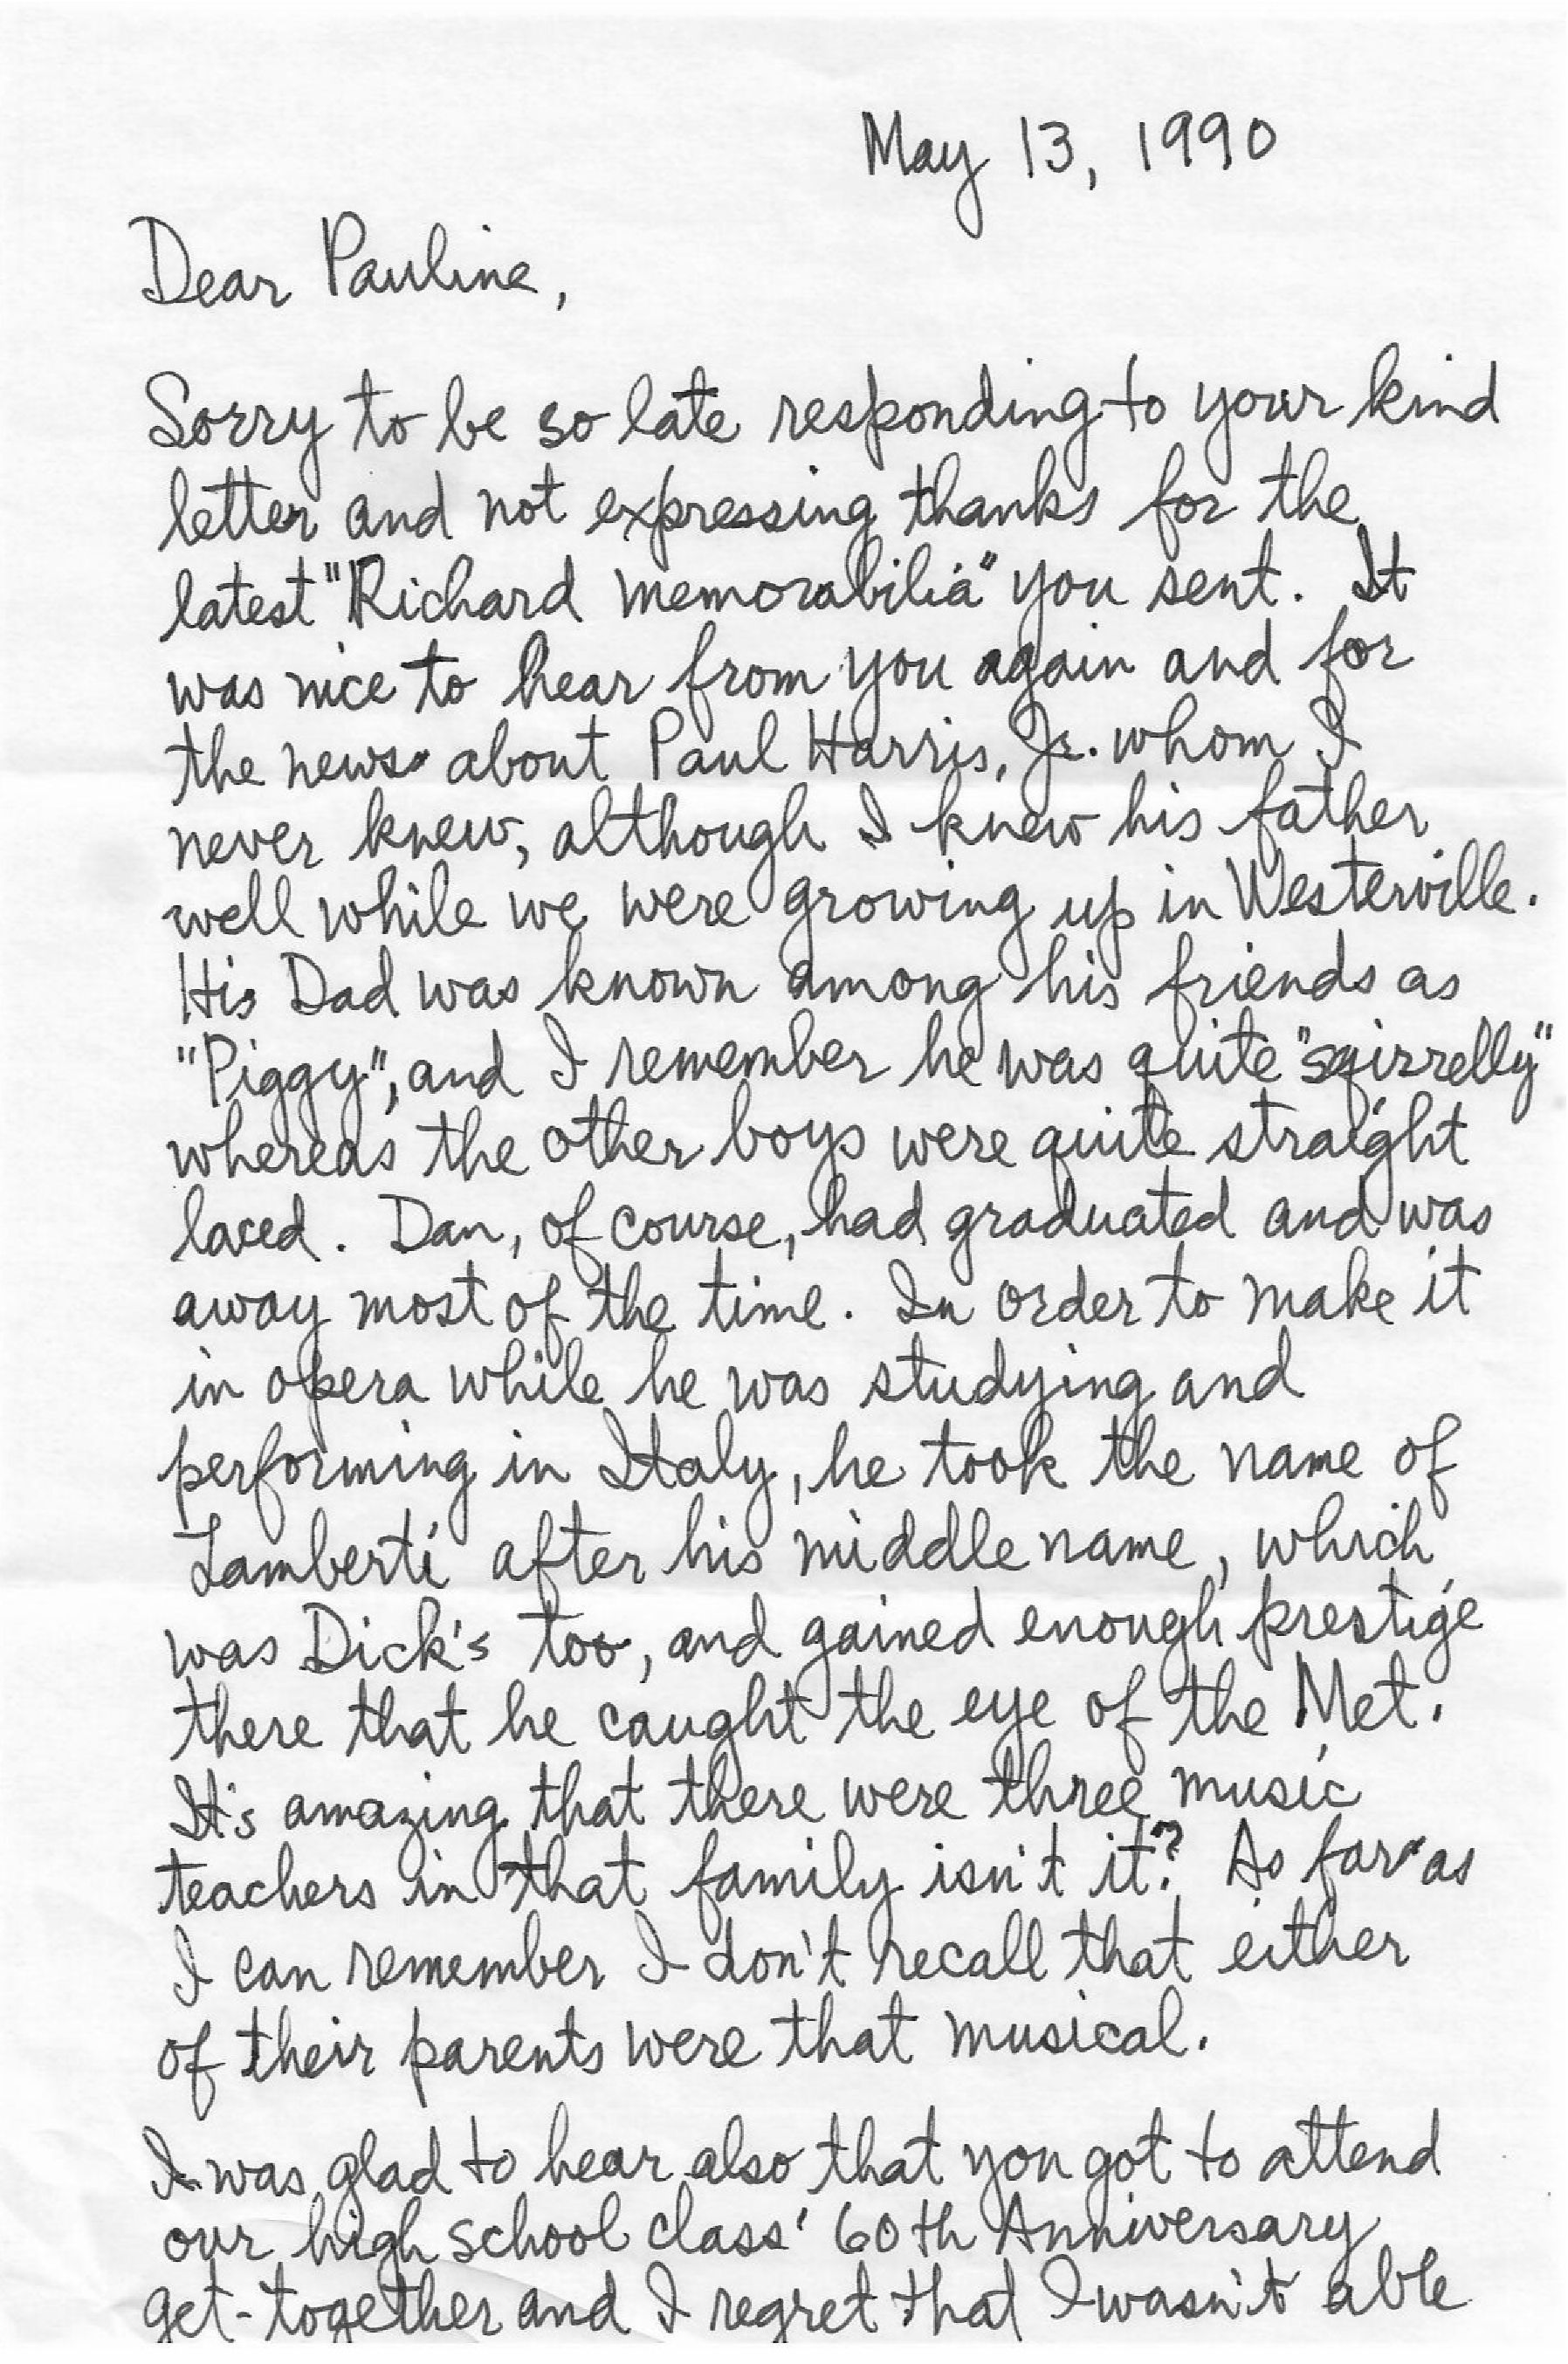 May 13, 1990
Dear Pauline,
Sorry to be so late responding to your kind
letter and not expressing thanks for the
latest "Richard memorabilia" you sent. It
was nice to hear from you again and for
the news about Paul Harris, Jr. whom I
never knew, although I knew his father
well while we were growing up in Westerville.
His Dad was known among his friends as
"Piggy", and I remember he was quite "sqirrelly"
whereas the other boys were quite straight
laced. Dan, of course, had graduated and was
away most of the time. In order to make it
in opera while he was studying and
performing in Italy, he took the name of
Lamberti after his middle name, which
was Dick's too, and gained enough prestige
there that he caught the eye of the Met.
It's amazing that there were three music
teachers in that family isn't it? As far as
I can remember I don't recall that either
of their parents were that musical.
I was glad to hear also that you got to attend
our high school class' 60th Anniversary
get-together and I regret that I wasn't able